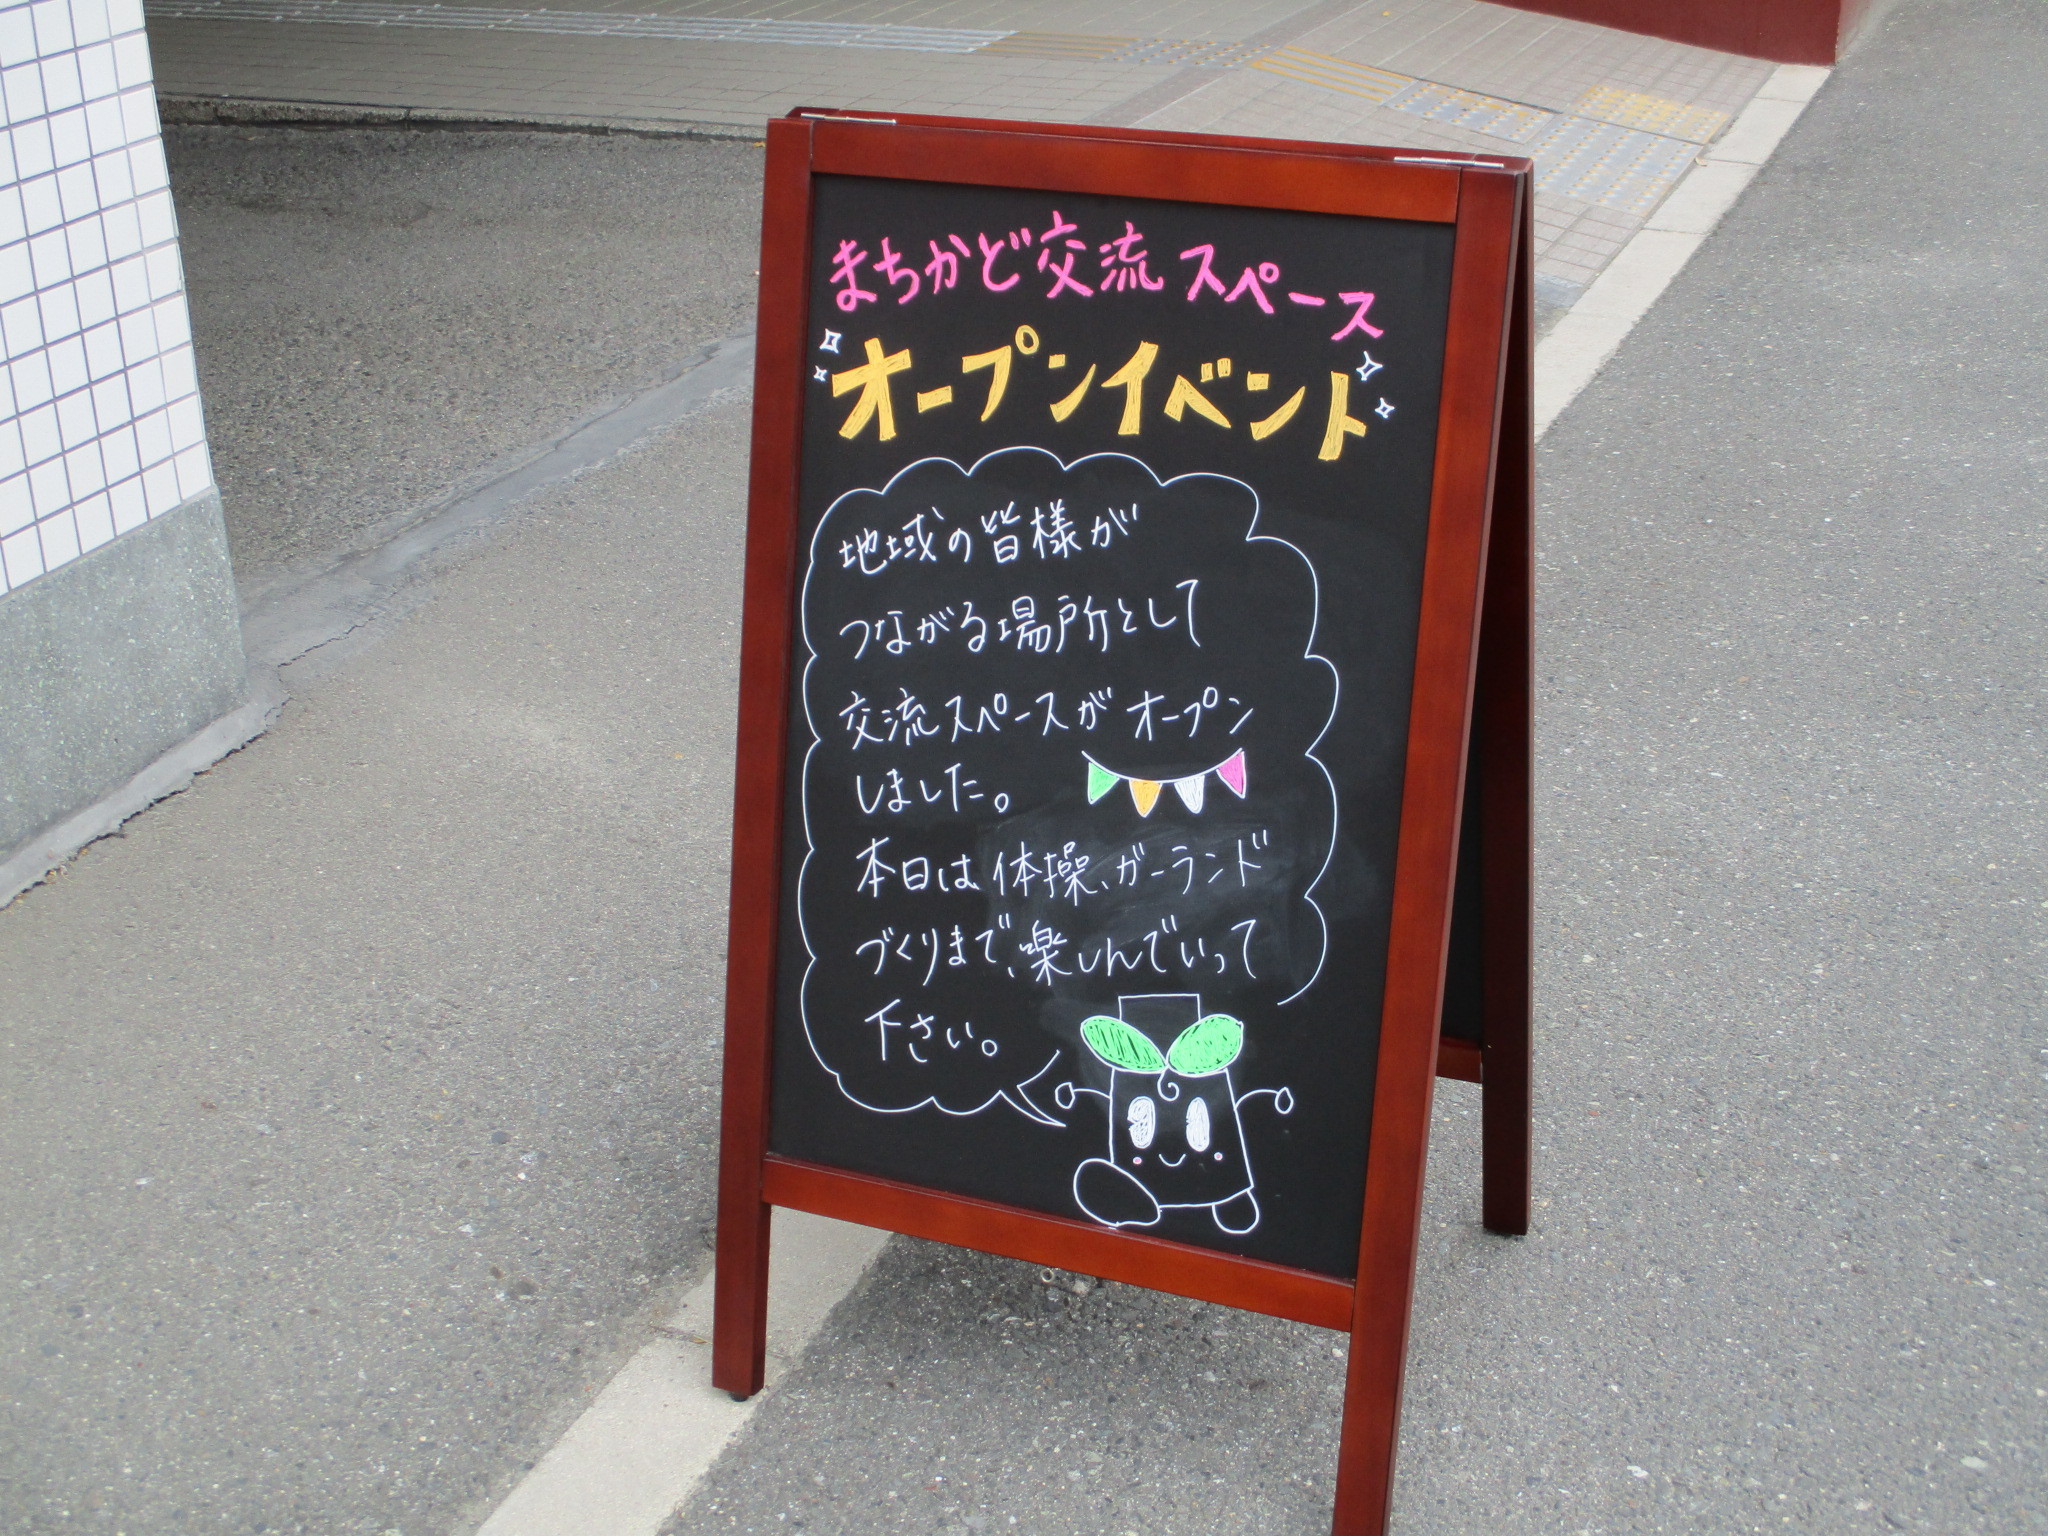 まちかど交流スペース
オープンイベント
地域の皆様が
つながる場所として
交流スペースがオープン
しました。
本日は体操、ガーランド
づくりまで、楽しんでいって
下さい。